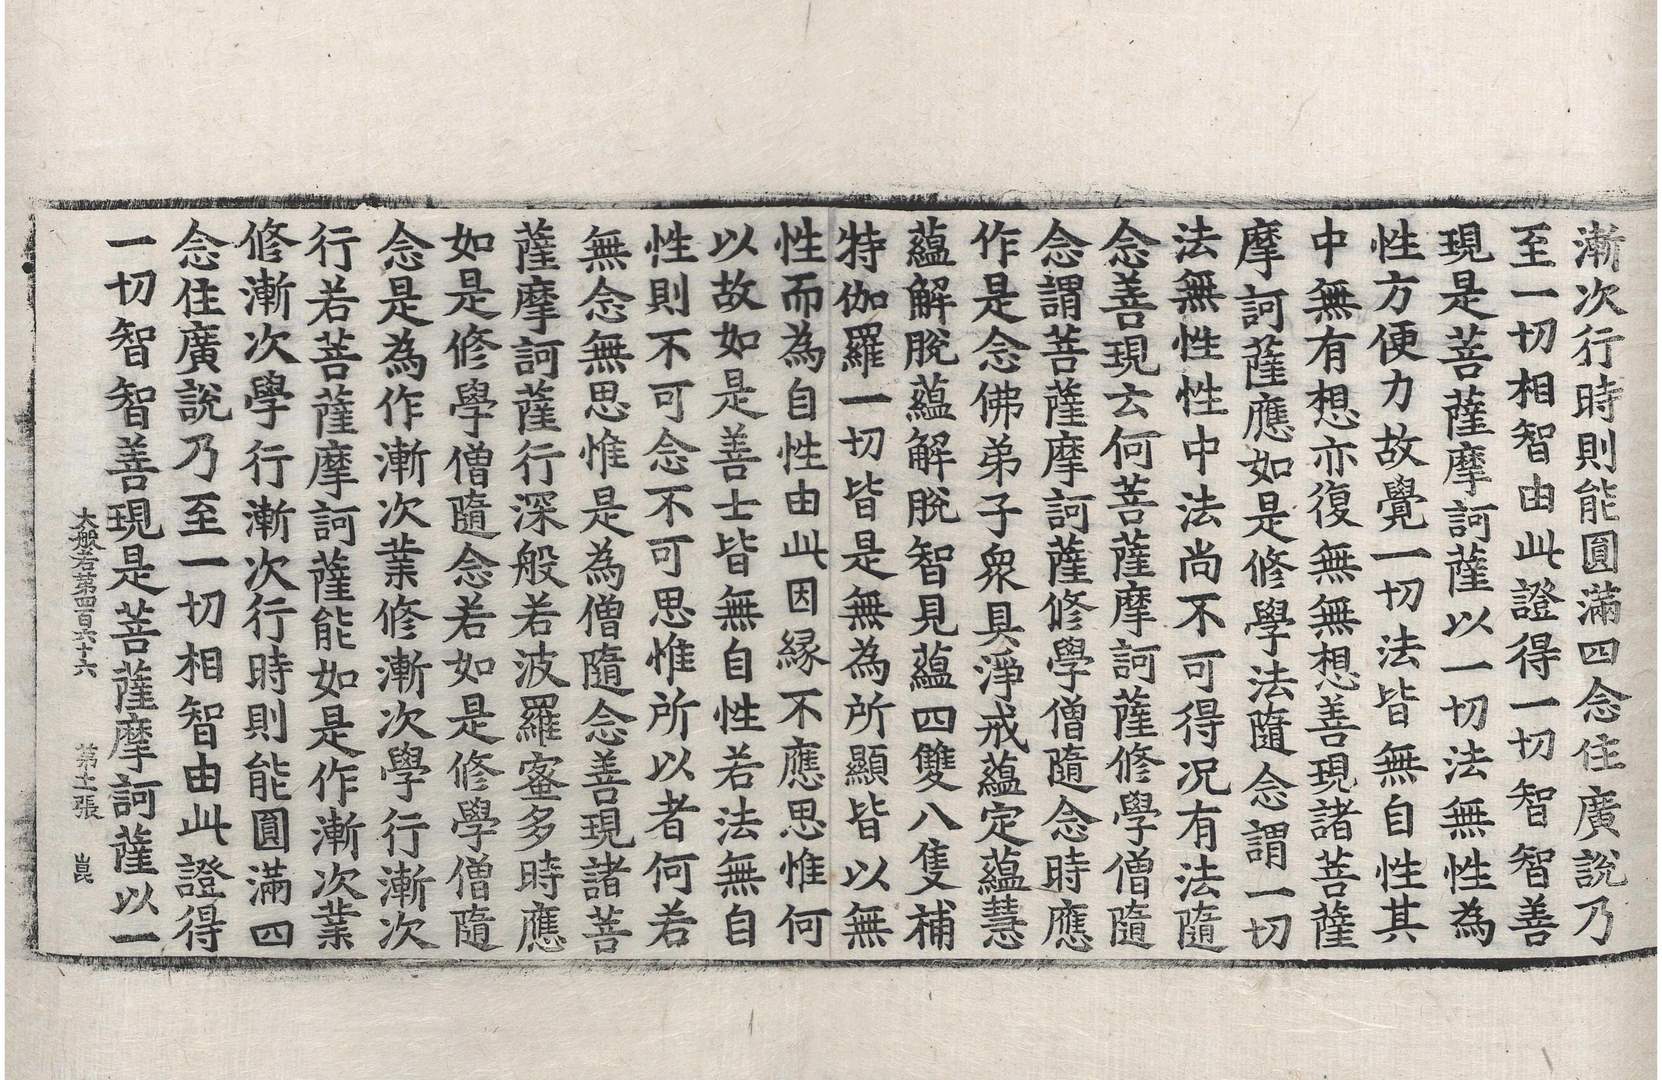 漸次行時則能圓滿四念住廣說乃
至一切相智由此證得一切智智善
現是菩薩摩訶薩以一切法無性為
性方便力故覺一切法皆無自性其
中無有想亦復無無想善現諸菩薩
摩訶薩應如是修學法隨念謂一切
法無性性中法尚不可得況有法隨
念善現云何菩薩摩訶薩修學僧隨
念謂菩薩摩訶薩修學僧隨念時應
作是念佛弟子衆具淨戒蘊定蘊慧
蘊解脫蘊解脫智見蘊四雙八隻補
特伽羅一切皆是無為所顯皆以無
性而為自性由此因緣不應思惟何
以故如是善士皆無自性若法無自
性則不可念不可思惟所以者何若
無念無思惟是為僧隨念善現諸菩
薩摩訶薩行深般若波羅蜜多時應
如是修學僧隨念若如是修學僧隨
念是為作漸次業修漸次學行漸次
行若菩薩摩訶薩能如是作漸次業
修漸次學行漸次行時則能圓滿四
念住廣說乃至一切相智由此證得
一切智智善現是菩薩摩訶薩以一
大般若第四百六十六 第十一張 崑